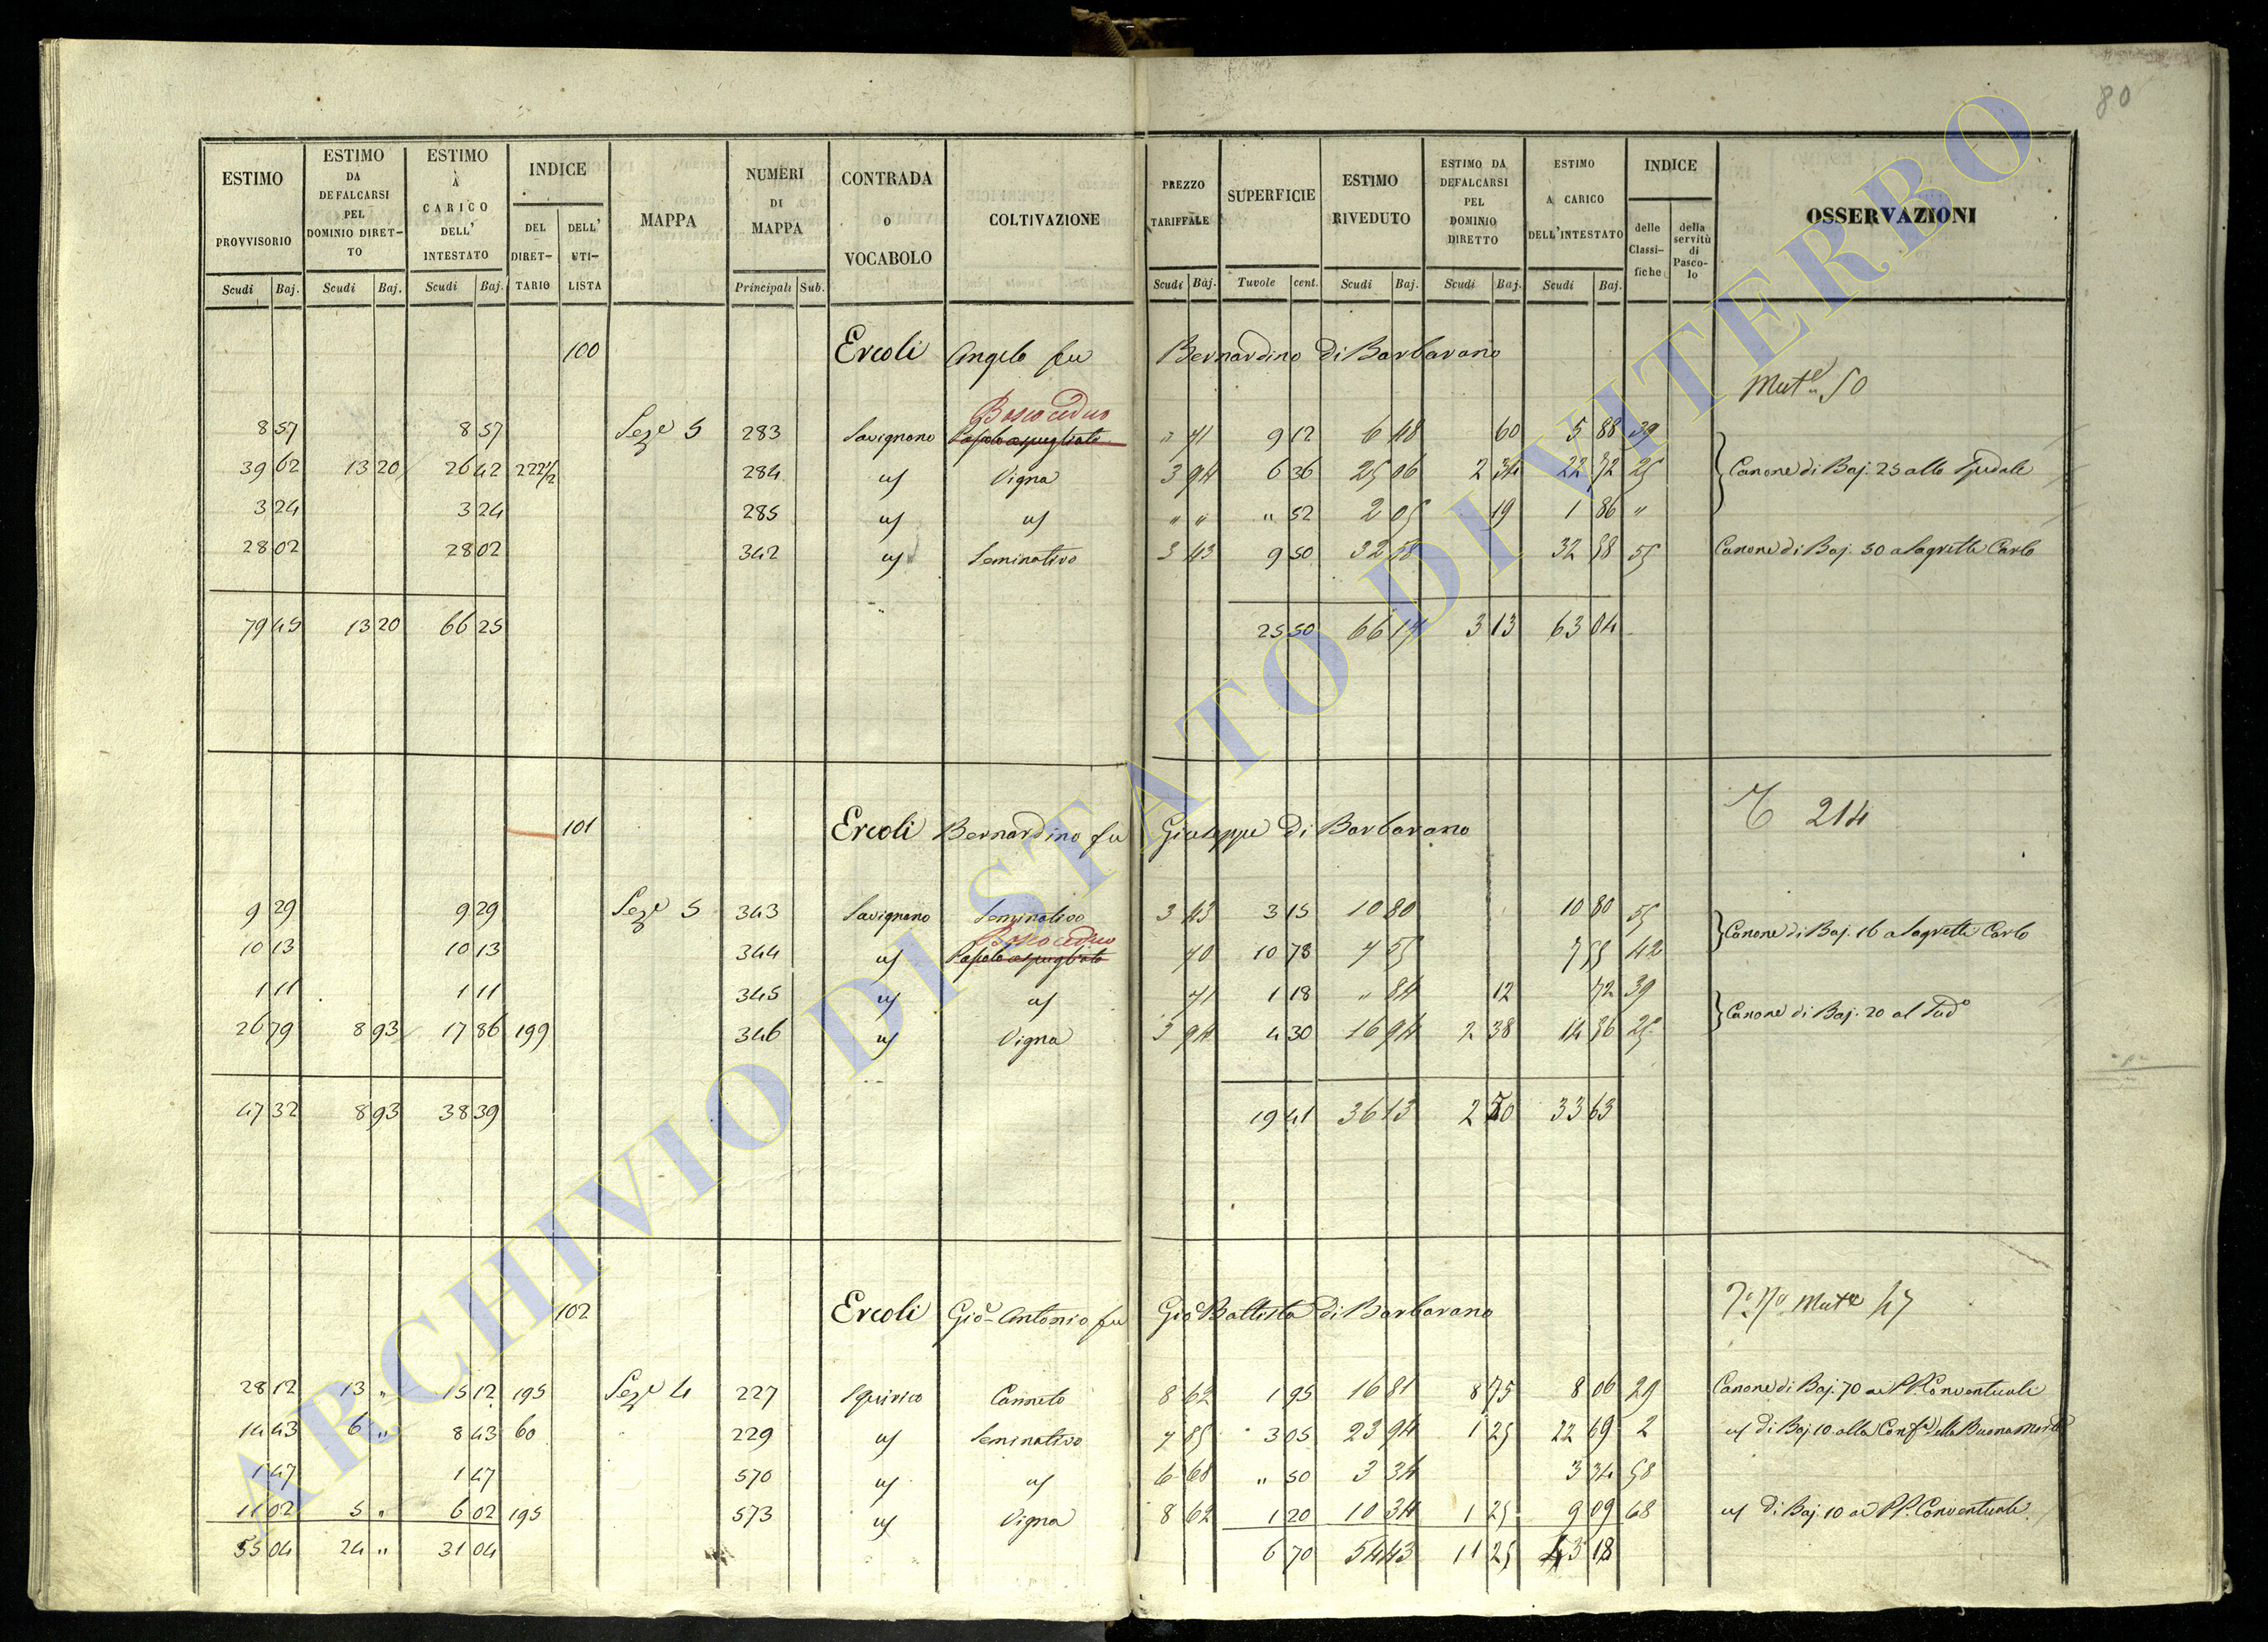 80
ESTIMO PROVVISORIO | ESTIMO DA DEFALCARSI PEL DOMINIO DIRETTO | ESTIMO À CARICO DELL' INTESTATO | INDICE DEL DIRETTARIO | DELL' UTILISTA | MAPPA | NUMERI DI MAPPA | CONTRADA o VOCABOLO | COLTIVAZIONE | PREZZO TARIFFALE | SUPERFICIE | ESTIMO RIVEDUTO | ESTIMO DA DEFALCARSI PEL DOMINIO DIRETTO | ESTIMO A CARICO DELL'INTESTATO | INDICE delle Classifiche | della servitù di Pascolo | OSSERVAZIONI
Scudi Baj. | Scudi Baj. | Scudi Baj. | Principali Sub. | Scudi Baj. | Tavole cent. | Scudi Baj. | Scudi Baj. | Scudi Baj.
100 Ercoli Angelo fu Bernardino di Barbarano
Mut.e 50
Bosco ceduo
8 57 | 8 57 | Sez.e 5 | 283 | Savignano | Pascolo cespugliato | " 71 | 9 12 | 6 48 | 60 | 5 88 | 39
39 62 | 13 20 | 26 42 | 222 1/2 | 284 | us | Vigna | 3 94 | 6 36 | 25 06 | 2 34 | 22 72 | 25 | Canone di Baj. 25 allo Spedale
3 24 | 3 24 | 285 | us | us | " " | " 52 | 2 05 | 19 | 1 86 | "
28 02 | 28 02 | 342 | us | Seminativo | 3 43 | 9 50 | 32 58 | 32 58 | 55 | Canone di Baj. 50 a Sagretti Carlo
79 45 | 13 20 | 66 25 | 25 50 | 66 17 | 3 13 | 63 04
101 Ercoli Bernardino fu Giuseppe di Barbarano
214
9 29 | 9 29 | Sez.e 5 | 343 | Savignano | Seminativo | 3 43 | 3 15 | 10 80 | 10 80 | 55
Bosco ceduo | Canone di Baj. 16 a Sagretti Carlo
10 13 | 10 13 | 344 | us | Pascolo cespugliato | 70 | 10 78 | 7 55 | 7 55 | 42
1 11 | 1 11 | 345 | us | us | 71 | 1 18 | " 84 | 12 | 72 | 39
Canone di Baj. 20 al Sud.o
26 79 | 8 93 | 17 86 | 199 | 346 | us | Vigna | 3 94 | 4 30 | 16 94 | 2 38 | 14 56 | 25
47 32 | 8 93 | 38 39 | 19 41 | 36 13 | 2 50 | 33 63
102 Ercoli Gio. Antonio fu Gio Battista di Barbarano
Mut.e 47
28 12 | 13 " | 15 12 | 195 | Sez.e 4 | 227 | Squirico | Canneto | 8 62 | 1 95 | 16 81 | 8 75 | 8 06 | 29 | Canone di Baj. 70 ai PP. Conventuali
14 43 | 6 " | 8 43 | 60 | 229 | us | Seminativo | 7 85 | 3 05 | 23 94 | 1 25 | 22 69 | 2 | us di Baj. 10 alla Conf.a della Buona Morte
1 47 | 1 47 | 570 | us | us | 6 68 | " 50 | 3 34 | 3 34 | 58
11 02 | 5 " | 6 02 | 195 | 573 | us | Vigna | 8 62 | 1 20 | 10 34 | 1 25 | 9 09 | 68 | us di Baj. 10 ai PP. Conventuali
55 04 | 24 " | 31 04 | 6 70 | 54 43 | 11 25 | 43 18
ARCHIVIO DI STATO DI VITERBO